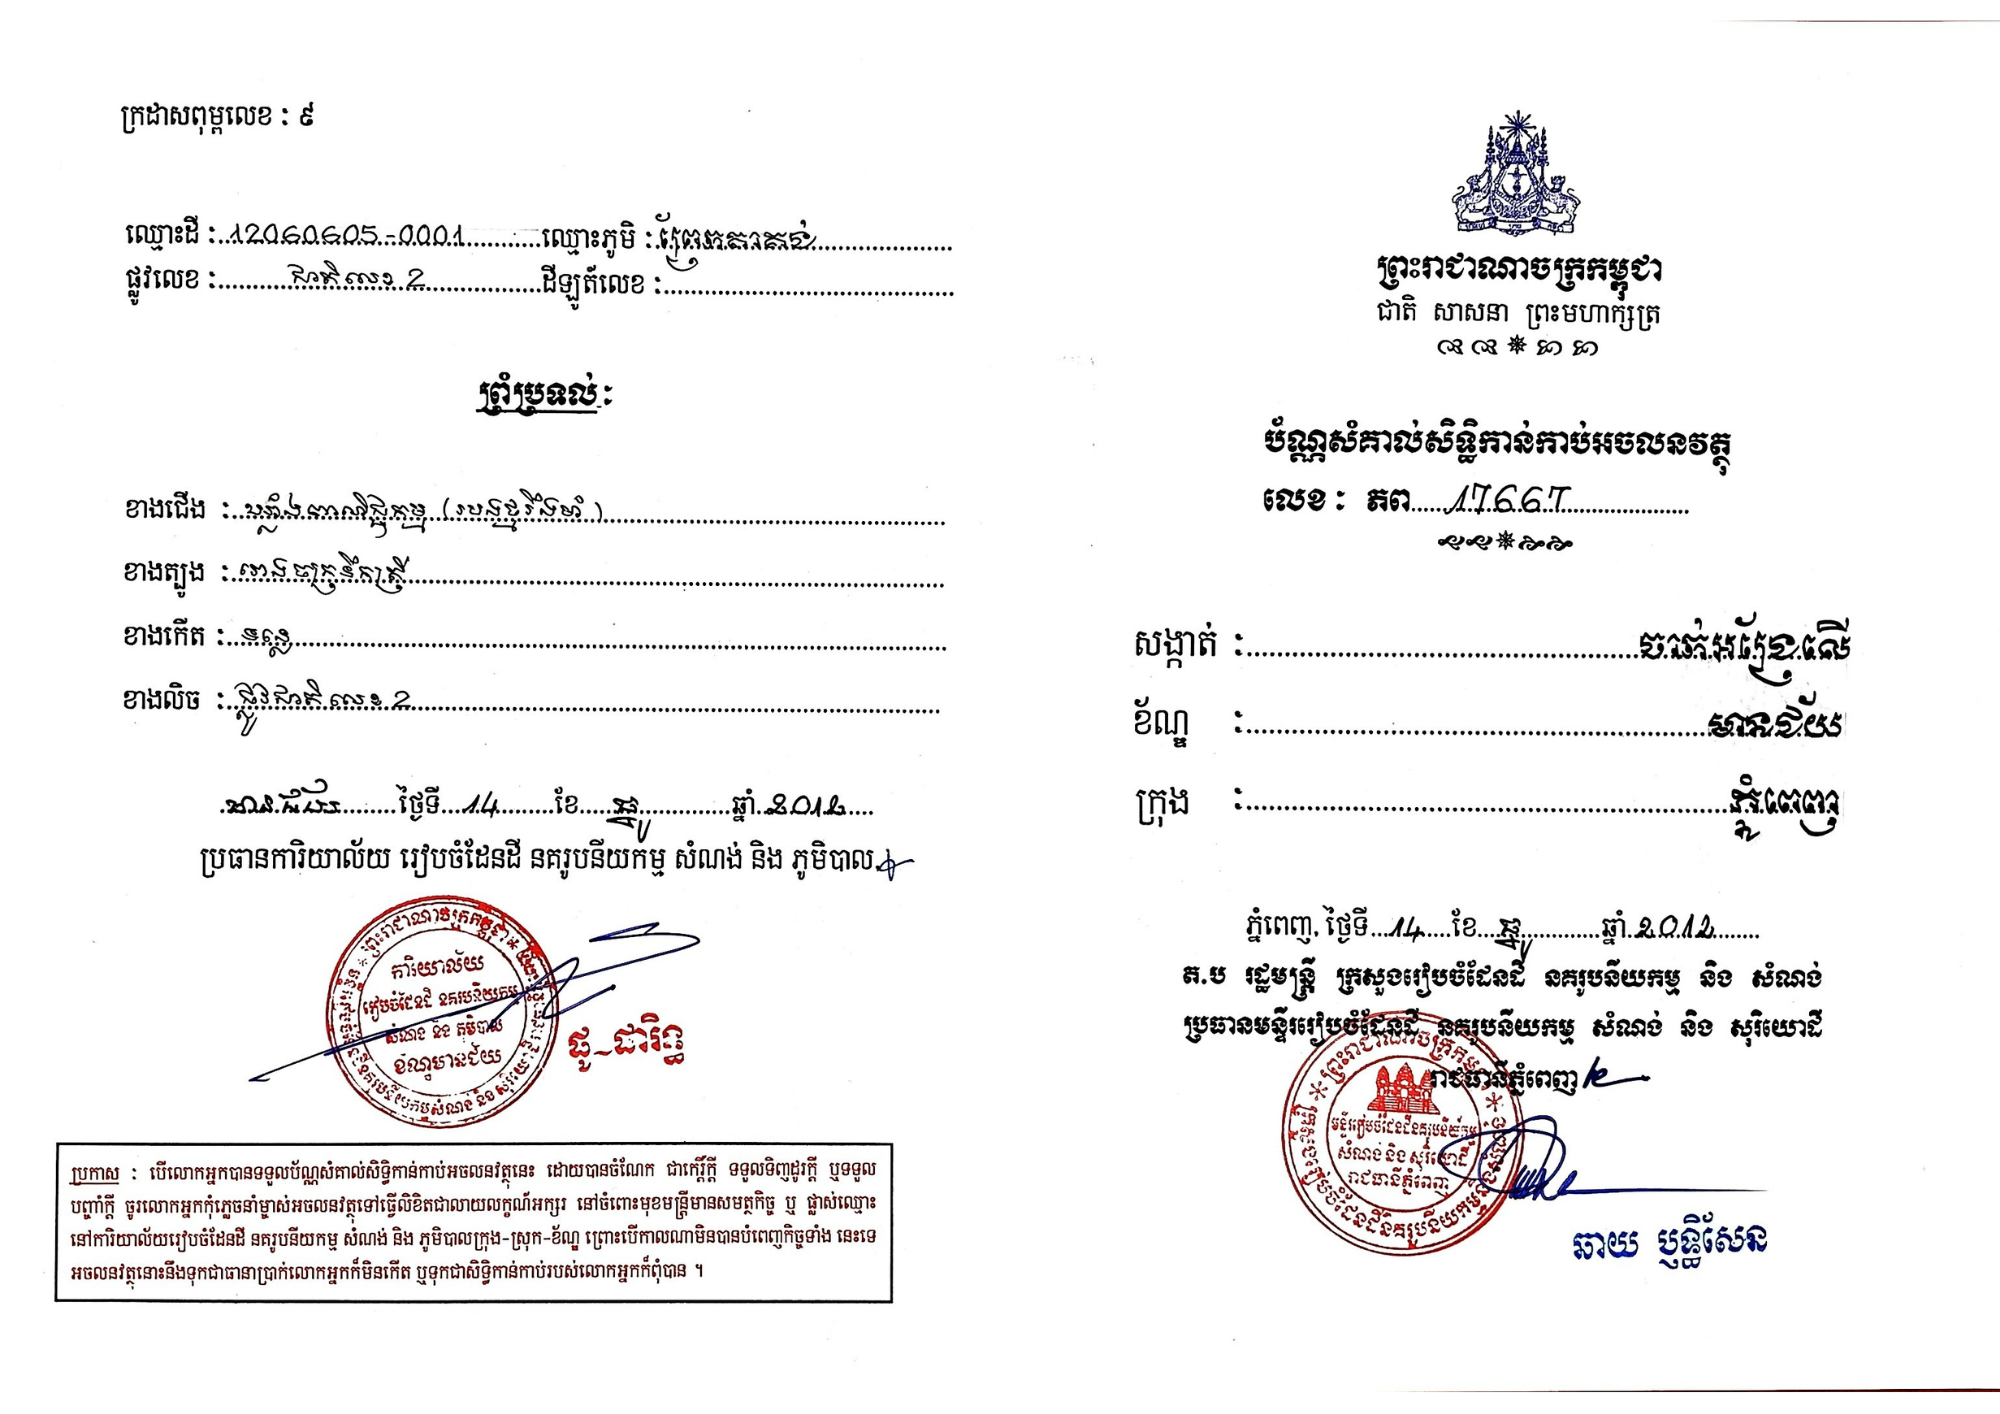 ក្រដាសពុម្ពលេខ : ៩
ឈ្មោះដី : 12060605-0001 ឈ្មោះភូមិ : ព្រែកតាគង់
ផ្លូវលេខ : ជាតិលេខ 2 ដីឡូត៍លេខ :
ព្រំប្រទល់ :
ខាងជើង :
ខាងត្បូង :
ខាងកើត : ទន្លេ
ខាងលិច : ផ្លូវជាតិលេខ 2
មានជ័យ ថ្ងៃទី 14 ខែ ធ្នូ ឆ្នាំ 2012
ប្រធានការិយាល័យ រៀបចំដែនដី នគរូបនីយកម្ម សំណង់ និង ភូមិបាល
ការិយាល័យ
រៀបចំដែនដី នគរូបនីយកម្ម
សំណង់ និង ភូមិបាល
ខ័ណ្ឌមានជ័យ
ធូ-ដារិទ្ធ
ប្រកាស : បើលោកអ្នកបានទទួលប័ណ្ណសំគាល់សិទ្ធិកាន់កាប់អចលនវត្ថុនេះ ដោយបានចំណែក ជាកេរ្តិ៍ក្តី ទទួលទិញដូរក្តី ឬទទួល
បញ្ចាំក្តី ចូរលោកអ្នកកុំភ្លេចនាំម្ចាស់អចលនវត្ថុទៅធ្វើលិខិតជាលាយលក្ខណ៍អក្សរ នៅចំពោះមុខមន្ត្រីមានសមត្ថកិច្ច ឬ ផ្លាស់ឈ្មោះ
នៅការិយាល័យរៀបចំដែនដី នគរូបនីយកម្ម សំណង់ និង ភូមិបាលក្រុង-ស្រុក-ខ័ណ្ឌ ព្រោះបើកាលណាមិនបានបំពេញកិច្ចទាំង នេះទេ
អចលនវត្ថុនោះនឹងទុកជាធានាប្រាក់លោកអ្នកក៏មិនកើត ឬទុកជាសិទ្ធិកាន់កាប់របស់លោកអ្នកក៏ពុំបាន ។
ព្រះរាជាណាចក្រកម្ពុជា
ជាតិ សាសនា ព្រះមហាក្សត្រ
ប័ណ្ណសំគាល់សិទ្ធិកាន់កាប់អចលនវត្ថុ
លេខ : ភព 17667
សង្កាត់ : ចាក់អង្រែលើ
ខ័ណ្ឌ : មានជ័យ
ក្រុង : ភ្នំពេញ
ភ្នំពេញ, ថ្ងៃទី 14 ខែ ធ្នូ ឆ្នាំ 2012
ត.ប រដ្ឋមន្ត្រី ក្រសួងរៀបចំដែនដី នគរូបនីយកម្ម និង សំណង់
ប្រធានមន្ទីររៀបចំដែនដី នគរូបនីយកម្ម សំណង់ និង សុរិយោដី
រាជធានីភ្នំពេញ
មន្ទីររៀបចំដែនដីនគរូបនីយកម្ម
សំណង់ និង សុរិយោដី
រាជធានីភ្នំពេញ
ឆាយ ឫទ្ធិសែន